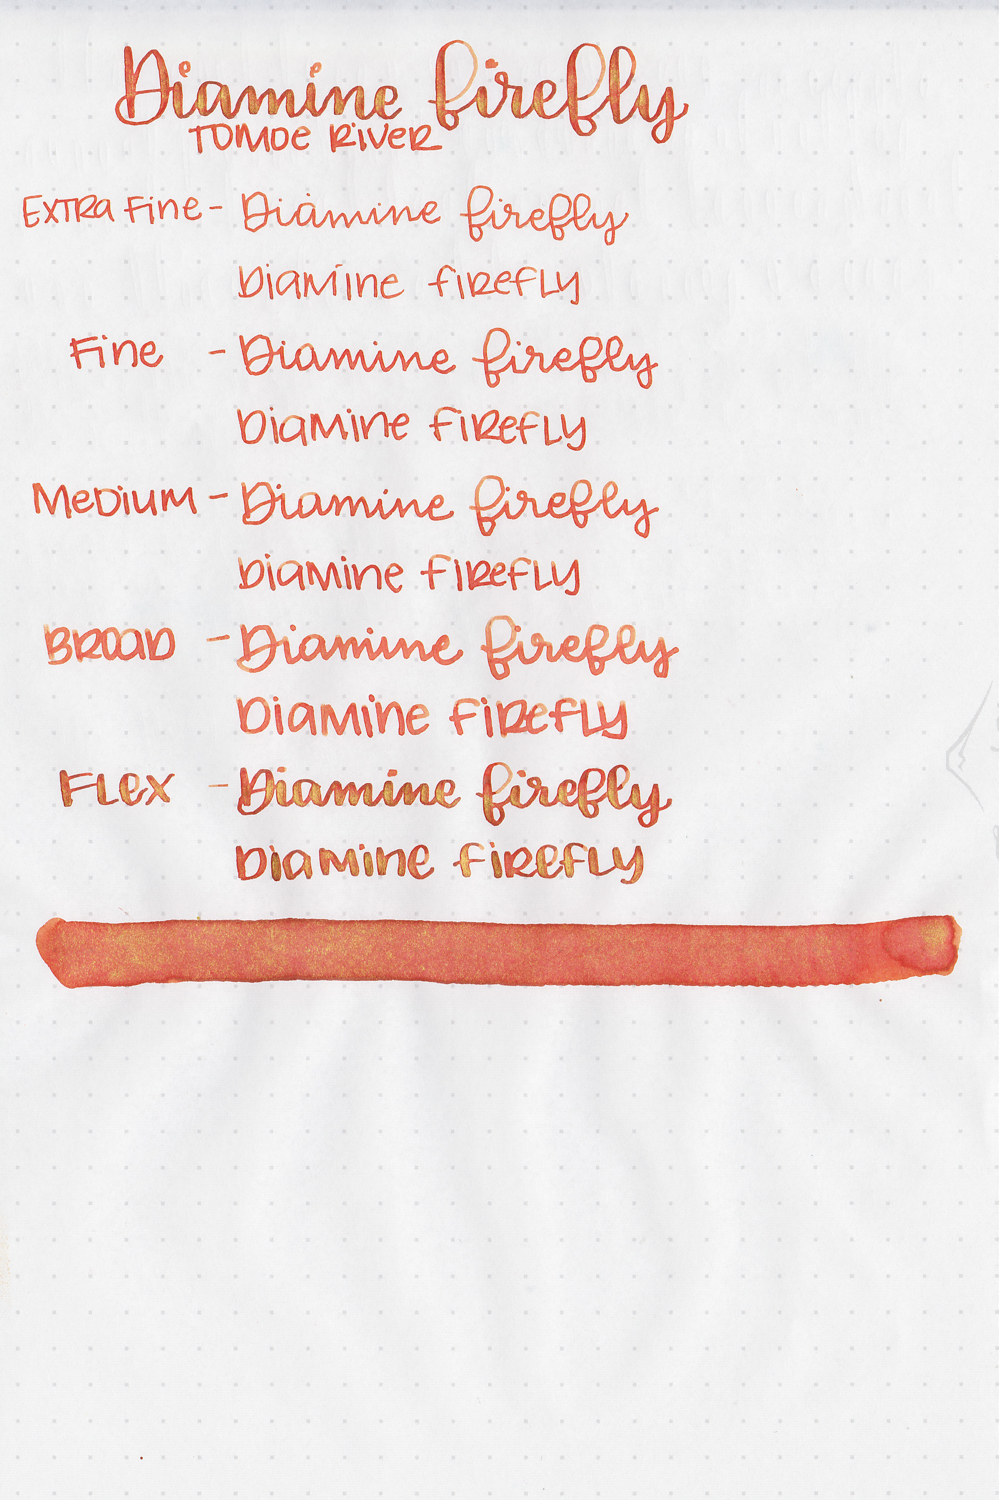 Diamine firefly
Tomoe River
Extra Fine - Diamine firefly
Diamine firefly
Fine - Diamine firefly
Diamine firefly
Medium - Diamine firefly
Diamine firefly
Broad - Diamine firefly
Diamine firefly
Flex - Diamine firefly
Diamine firefly